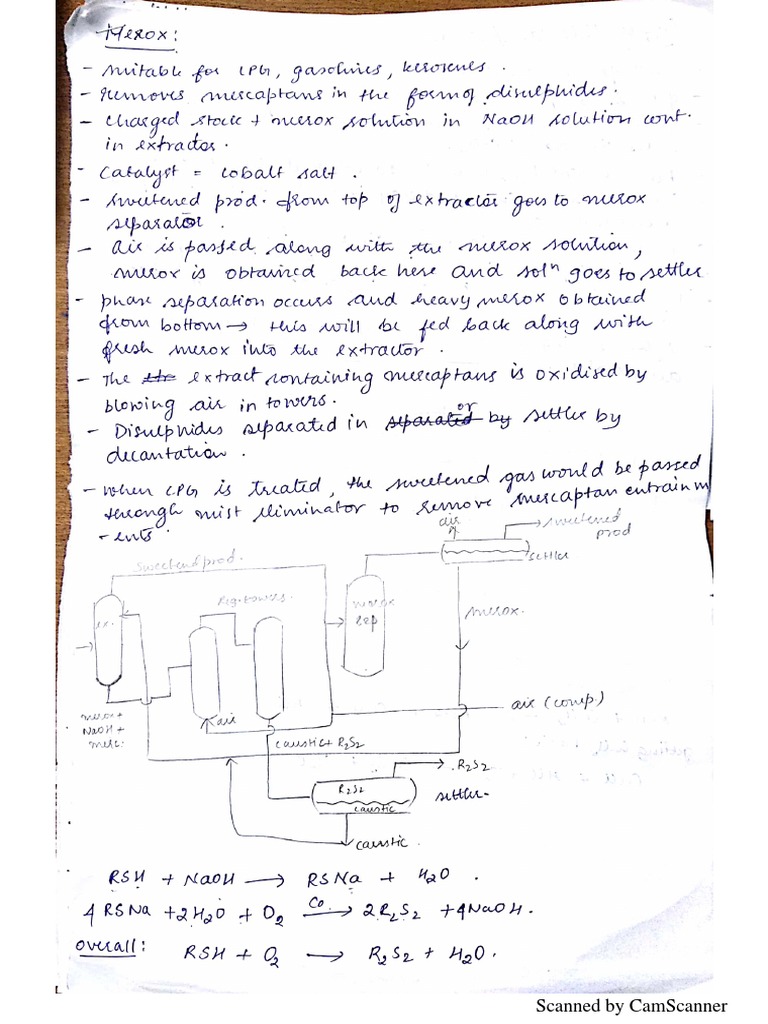 Merox:
- suitable for LPG, gasolines, kerosenes.
- Removes mercaptans in the form of disulphides.
- Charged stock + merox solution in NaOH solution cont.
in extractor.
- Catalyst = cobalt salt.
- sweetened prod. from top of extractor goes to merox
separator.
- air is passed along with the merox solution,
merox is obtained back here and solⁿ goes to settler
- phase separation occurs and heavy merox obtained
from bottom → this will be fed back along with
fresh merox into the extractor.
- The extract containing mercaptans is oxidised by
blowing air in towers.
- Disulphides separated in or settler by
decantation.
- When LPG is treated, the sweetened gas would be passed
through mist eliminator to remove mercaptan entrainm
-ents.
air
sweetened
prod
settler
sweetened prod.
Reg. towers.
ex.
merox
sep
merox.
air (comp.)
merox +
NaOH +
merc.
air
caustic + R₂S₂
R₂S₂
R₂S₂
caustic
settler.
caustic.
RSH + NaOH → RSNa + H₂O.
4 RSNa + 2H₂O + O₂ Co → 2R₂S₂ + 4NaOH.
overall: RSH + O₂ → R₂S₂ + H₂O.
Scanned by CamScanner